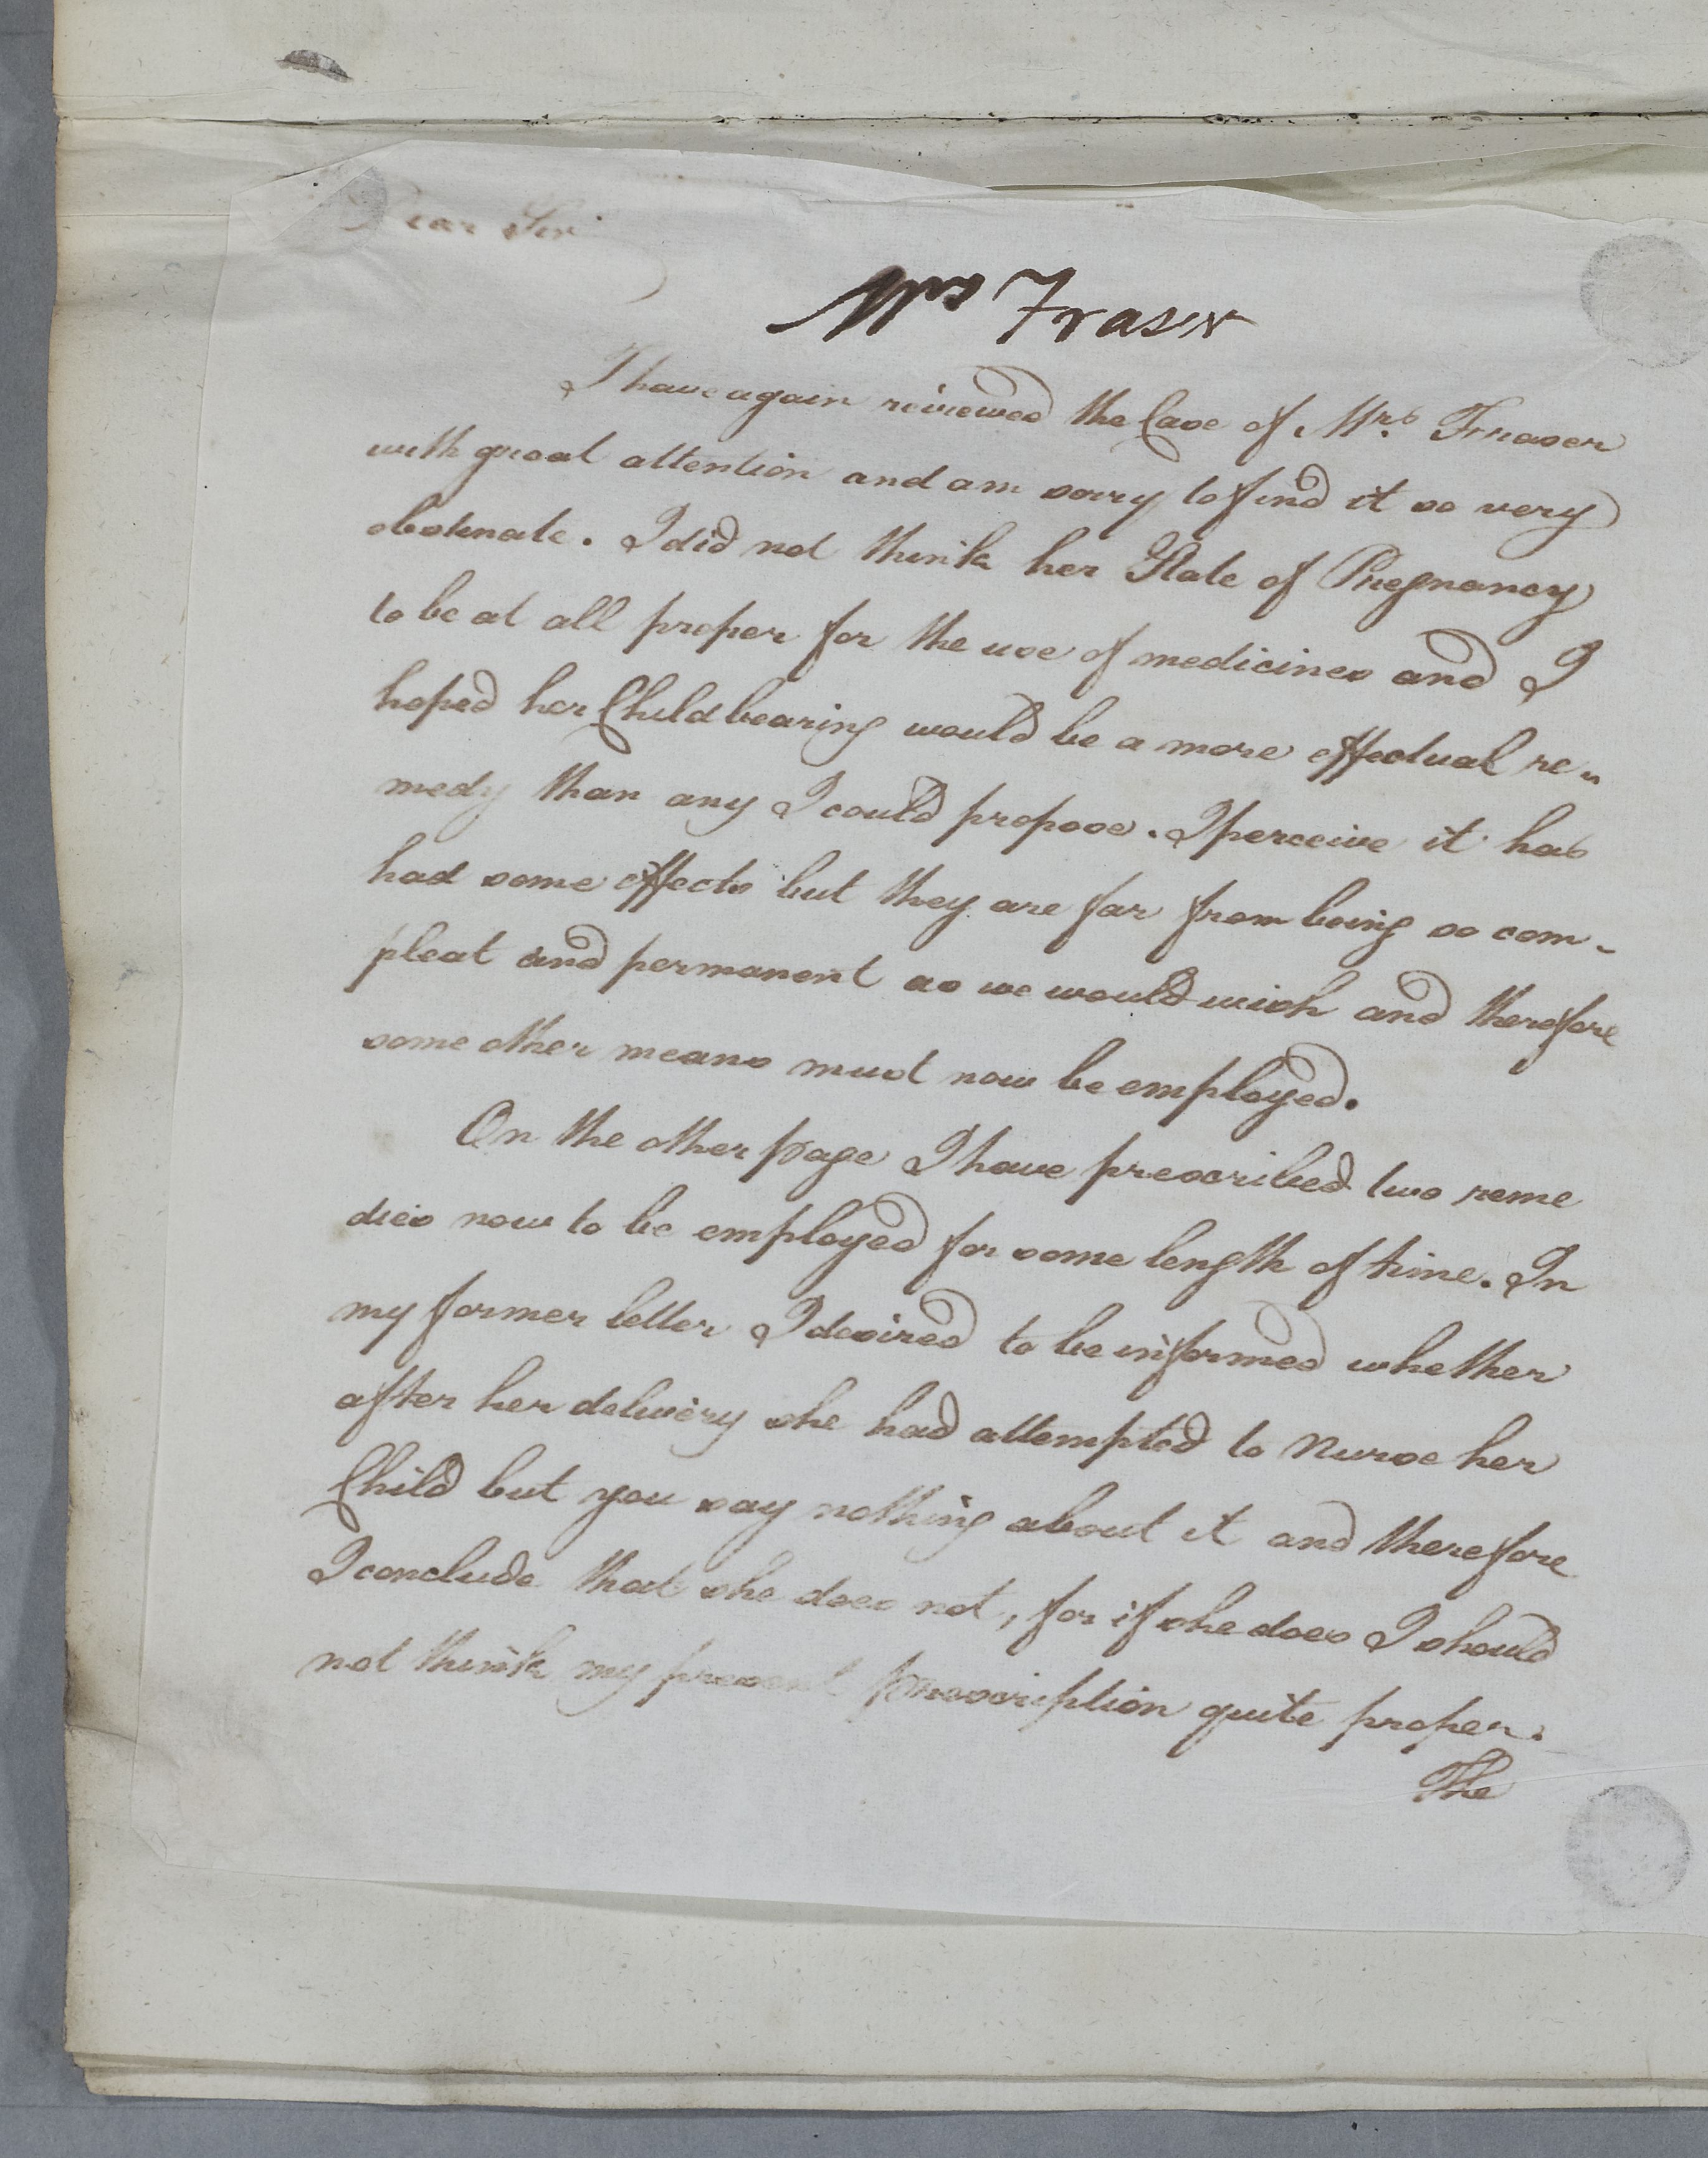 Dear Sir
Mrs Fraser
I have again reviewed the Case of Mrs. Fraser
with great attention and am sorry to find it so very
obstinate. I did not think her State of Pregnancy
to be at all proper for the use of medicines and I
hoped her Childbearing would be a more effectual re-
medy than any I could propose. I perceive it has
had some effects but they are far from being so com-
pleat and permanent as we would wish and therefore
some other means must now be employed.
On the other page I have prescribed two reme
dies now to be employed for some length of time. In
my former letter I desired to be informed whether
after her delivery she had attempted to Nurse her
Child but you say nothing about it and therefore
I conclude that she does not, for if she does I should
not think my present prescription quite proper.
The